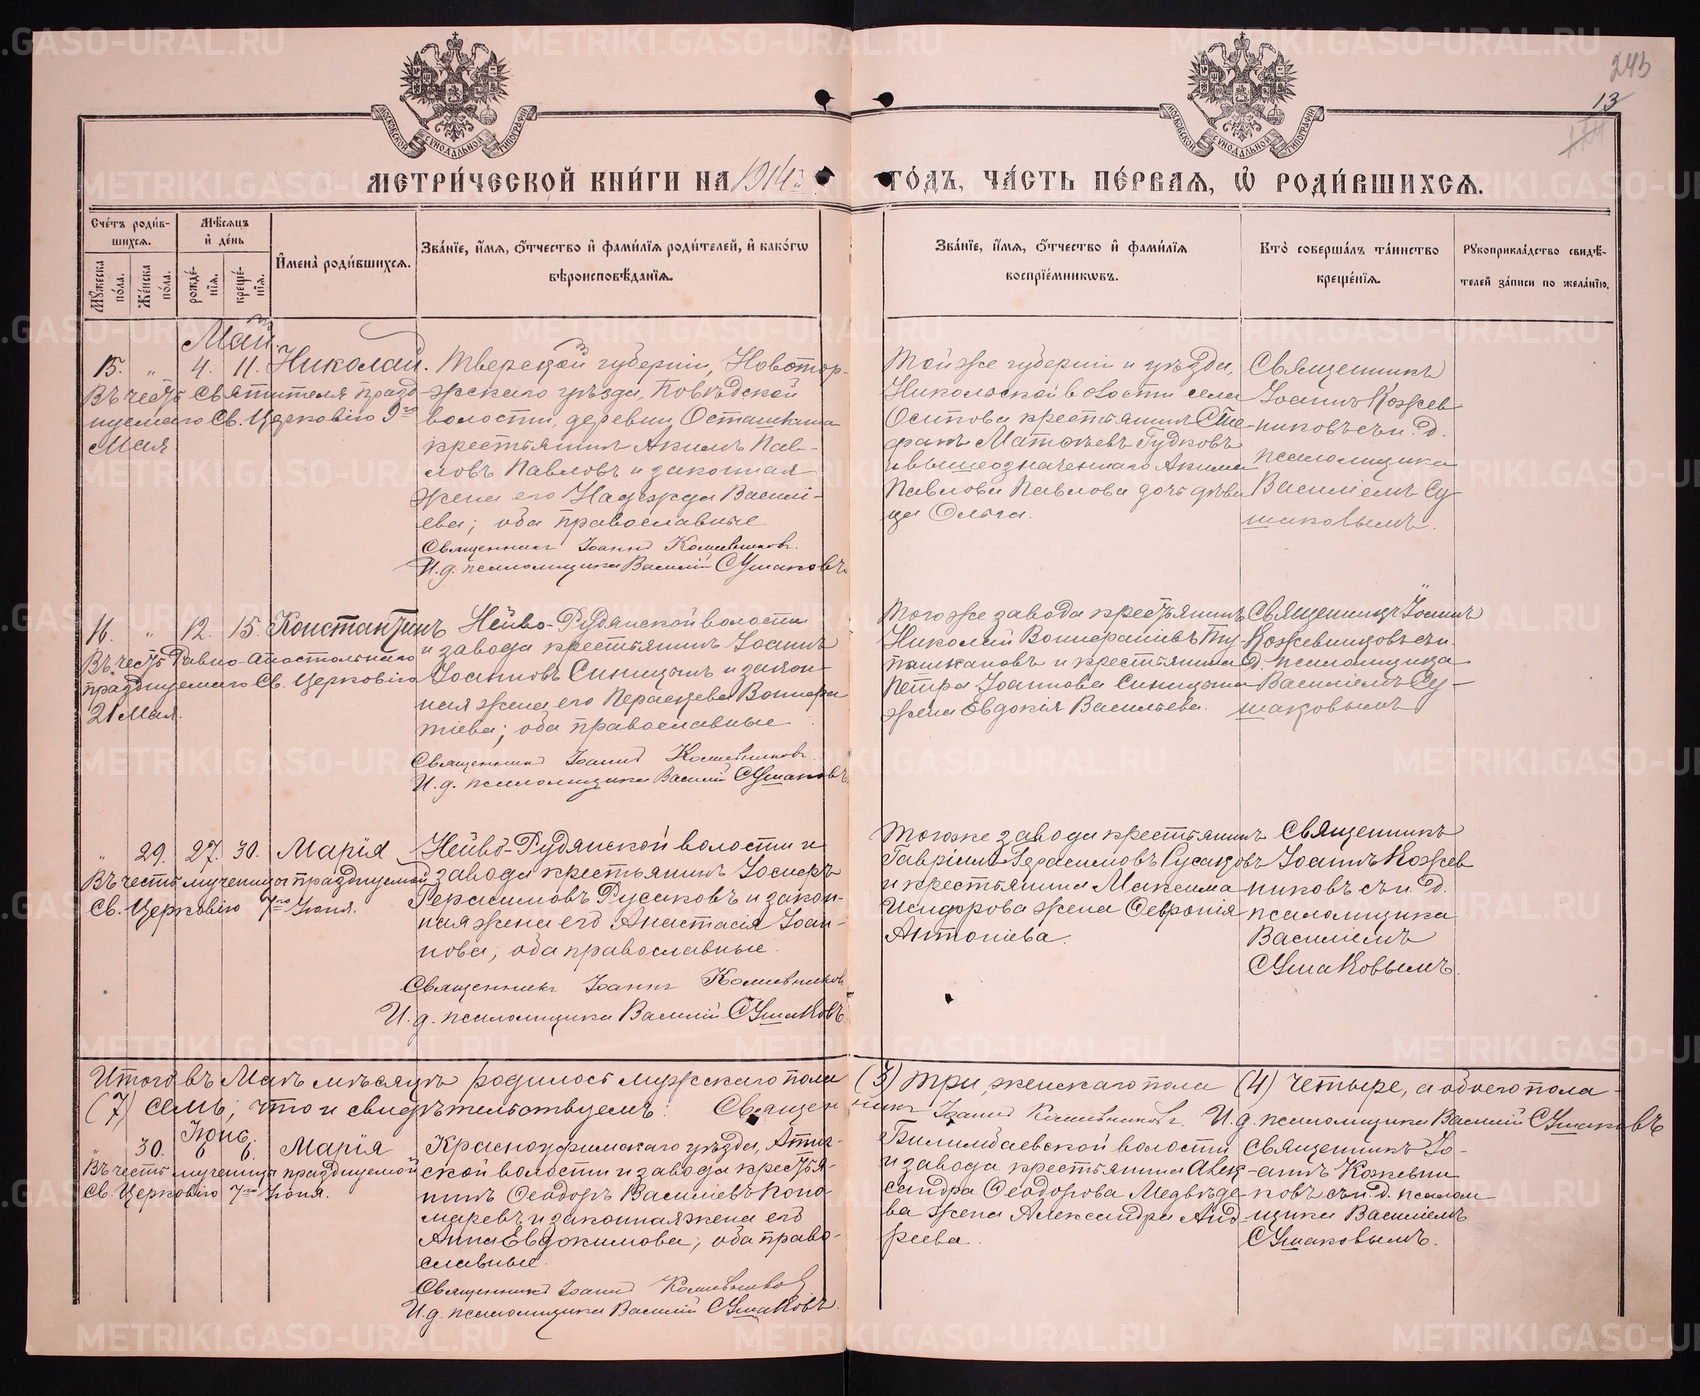 243
13
МОСКОВСКОЙ СѴНОДАЛЬНОЙ ТИПОГРАФІИ
МОСКОВСКОЙ СѴНОДАЛЬНОЙ ТИПОГРАФІИ
МЕТРИ́ЧЕСКОЙ КНИ́ГИ НА 1914й ГО́ДЪ, ЧА́СТЬ ПЕ́РВАЯ, Ѡ҆ РОДИ́ВШИХСЯ.
Сче́тъ роди́вшихся.
Мѣ́сяцъ и҆ де́нь
Мꙋ́жеска по́ла.
Же́нска по́ла.
рожде́нїя.
креще́нїя.
И҆мена̀ роди́вшихся.
Зва́нїе, и҆́мя, ѻ҆́тчество и҆ фами́лїя роди́телей, и҆ како́гѡ вѣроисповѣ́данїя.
Зва́нїе, и҆́мя, ѻ҆́тчество и҆ фами́лїя воспрїе́мникѡвъ.
Кто̀ соверша́лъ та́инство креще́нїя.
Рꙋкоприкла́дство свидѣ́телей за́писи по жела́нїю.
Май.
15. " 4. 11. Николай.
Въ честь Святителя празд-
нуемаго Св. Церковію 9го
Мая
Тверской губерніи, Новотор-
жскаго уѣзда, Повѣдской
волости, деревни Осташкина
крестьянинъ Акимъ Пав-
ловъ Павловъ и законная
жена его Надежда Василі-
ева; оба православные
Священникъ Іоаннъ Кожевниковъ.
И. д. псаломщика Василій Сушаковъ
Той же губерніи и уѣзда,
Никольской волости села
Осипова крестьянинъ Сте-
фанъ Матѳѣевъ Гудковъ
и вышеозначеннаго Акима
Павлова Павлова дочь дѣви-
ца Ольга.
Священникъ
Іоаннъ Кожев
никовъ съ и. д.
псаломщика
Василіемъ Су
шаковымъ.
16. " 12. 15. Константинъ
Въ честь Равно-апостольнаго
празднуемаго Св. Церковію
21 Мая.
Нейво-Рудянской волости
и завода крестьянинъ Іоаннъ
Іоанновъ Синицынъ и закон-
ная жена его Параскева Вонифа
тіева; оба православные
Священникъ Іоаннъ Кожевниковъ.
И. д. псаломщика Василій Сушаковъ
Того же завода крестьянинъ
Николай Вонифатіевъ
и крестьянина
Петра Іоаннова Синицына
жена Евдокія Васильева.
Священникъ Іоаннъ
Кожевниковъ съ и.
д. псаломщика
Василіемъ Су-
шаковымъ
" 29. 27. 30. Марія
Въ честь мученицы празднуемой
Св. Церковію 7го Іюня.
Нейво-Рудянской волости и
завода крестьянинъ Іосифъ
Герасимовъ Русаковъ и закон-
ная жена его Анастасія Іоан-
нова; оба православные.
Священникъ Іоаннъ Кожевниковъ
И. д. псаломщика Василій Сушаковъ
Того же завода крестьянинъ
Гавріилъ Герасимовъ Русаковъ
и крестьянина Максима
Исидорова жена Ѳевронія
Антоніева.
Священникъ
Іоаннъ Кожев
никовъ съ и. д.
псаломщика
Василіемъ
Сушаковымъ.
Итого въ Маѣ мѣсяцѣ родилось мужскаго пола (3) три, женскаго пола (4) четыре, а обоего пола
(7) семь; что и свидѣтельствуемъ: Священникъ Іоаннъ Кожевниковъ. И. д. псаломщика Василій Сушаковъ
Іюнь.
" 30. 6 6. Марія
Въ честь мученицы празднуемой
Св. Церковію 7го Іюня.
Красноуфимскаго уѣзда, Атиг-
ской волости и завода крестья-
нинъ Ѳеодоръ Василіевъ Поно
маревъ и законная жена его
Анна Евдокимова; оба право-
славные.
Священникъ Іоаннъ Кожевниковъ
И. д. псаломщика Василій Сушаковъ.
Билимбаевской волости
и завода крестьянина Алек
сандра Ѳеодорова Медвѣде
ва жена Александра Анд
реева.
Священникъ Іо-
аннъ Кожевни
ковъ съ и. д. псалом
щика Василіемъ
Сушаковымъ.